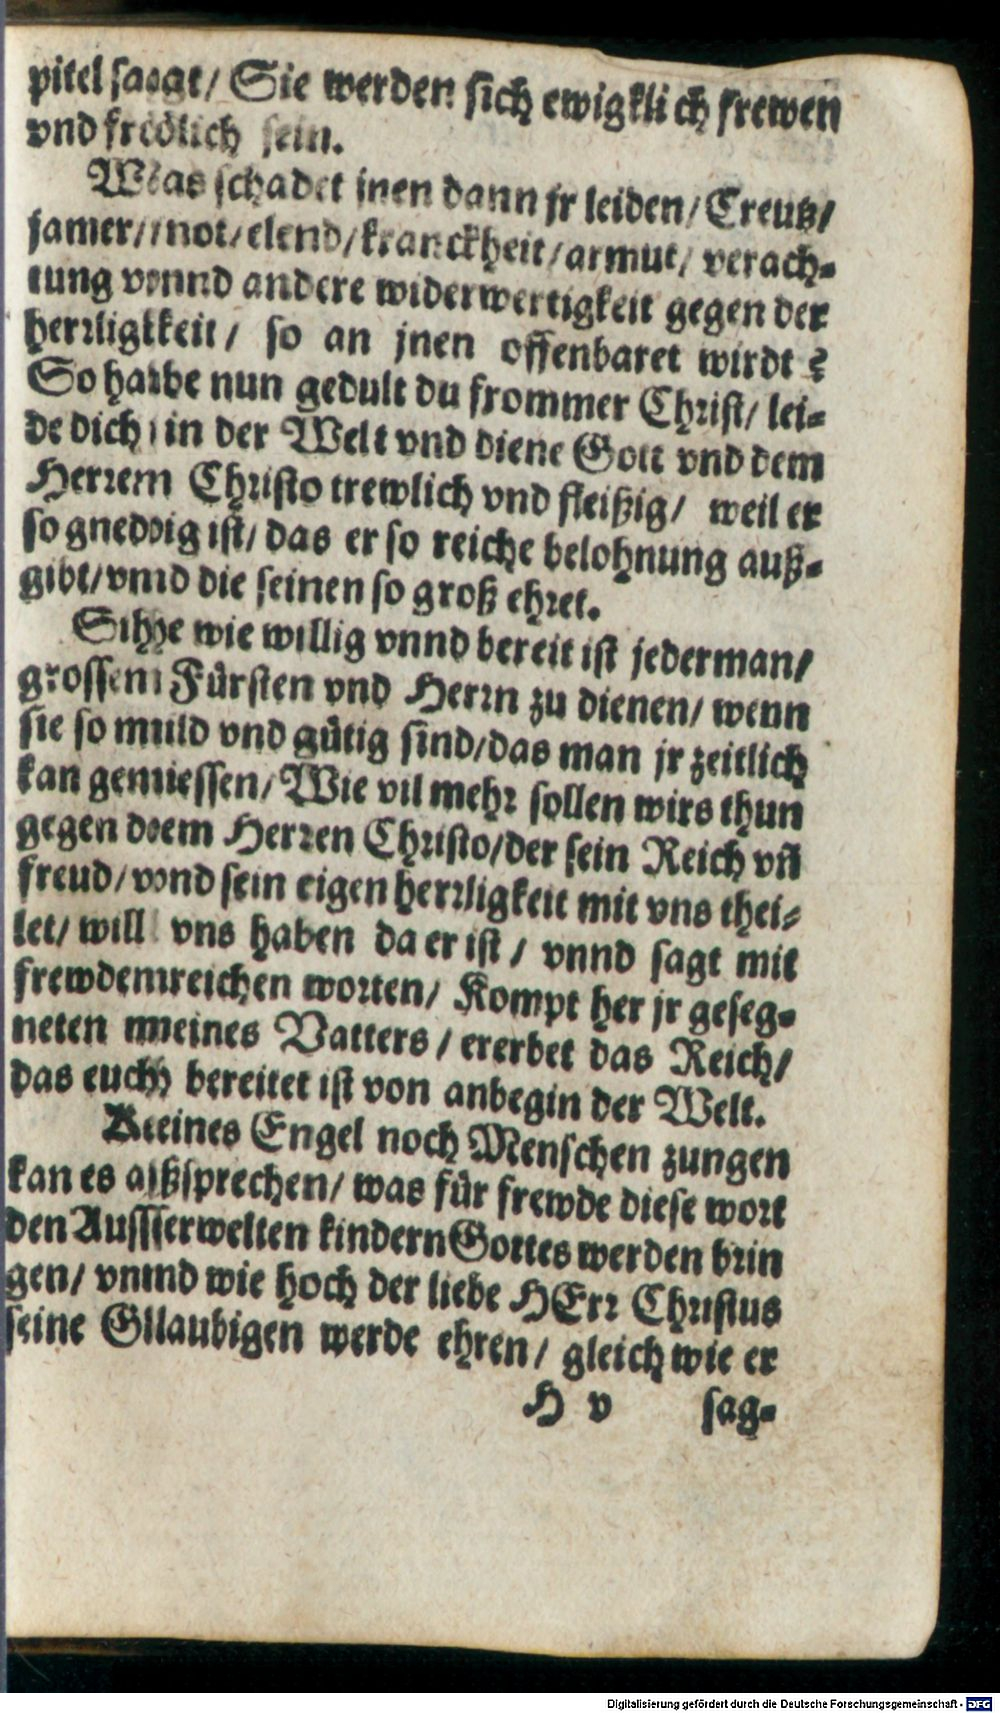 pitel sagt/ Sie werden sich ewigklich frewen
vnd frölich sein.
Was schadet jnen dann jr leiden/ Creutz/
jamer/ not/ elend/ kranckheit/ armut/ verach-
tung vnnd andere widerwertigkeit gegen der
herrligkeit/ so an jnen offenbaret wirdt?
So habe nun gedult du frommer Christ/ lei-
de dich in der Welt vnd diene Gott vnd dem
Herrem Christo trewlich vnd fleißig/ weil er
so gnedig ist/ das er so reiche belohnung auß-
gibt/ vnnd die seinen so groß ehret.
Sihe wie willig vnnd bereit ist jederman/
grossem Fürsten vnd Herrn zu dienen/ wenn
sie so mild vnd gütig sind/ das man jr zeitlich
kan geniessen/ Wie vil mehr sollen wirs thun
gegen dem Herren Christo/ der sein Reich vñ
freud/ vnd sein eigen herrligkeit mit vns thei-
let/ will vns haben da er ist/ vnnd sagt mit
frewdenreichen worten/ Kompt her jr geseg-
neten meines Vatters/ ererbet das Reich/
das euch bereitet ist von anbegin der Welt.
Keines Engel noch Menschen zungen
kan es außsprechen/ was für frewde diese wort
den Ausserwelten kindern Gottes werden brin
gen/ vnnd wie hoch der liebe HErr Christus
seine Glaubigen werde ehren/ gleich wie er
H v sag-
Digitalisierung gefördert durch die Deutsche Forschungsgemeinschaft - DFG